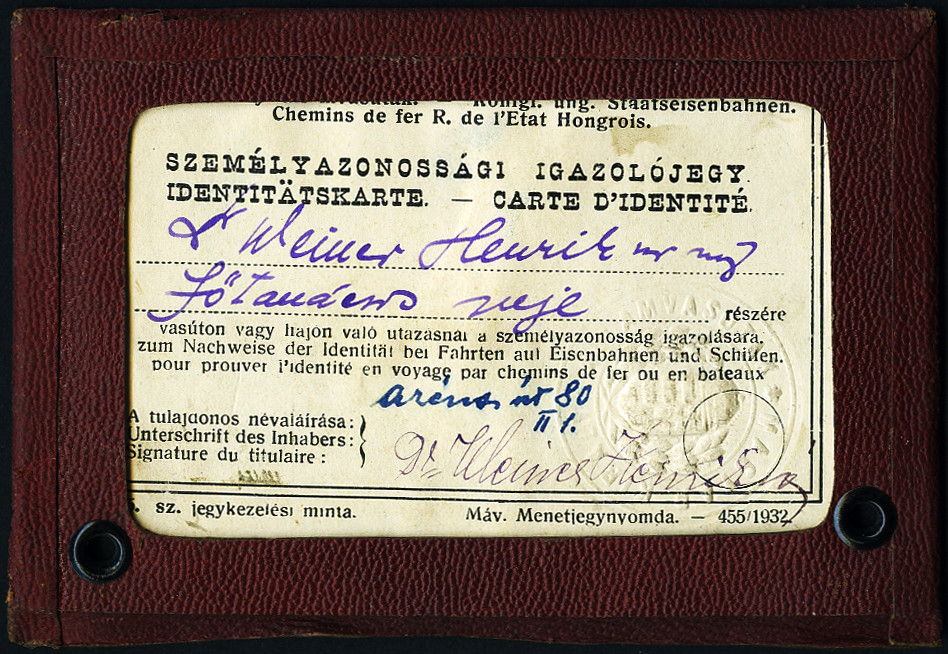 Königl. ung. Staatseisenbahnen.
Chemins de fer R. de l'Etat Hongrois.
SZEMÉLYAZONOSSÁGI IGAZOLÓJEGY.
IDENTITÄTSKARTE. — CARTE D'IDENTITÉ.
Dr Weiner Henrik
Főtanácsos neje
részére
vasúton vagy hajón való utazásnál a személyazonosság igazolására.
zum Nachweise der Identität bei Fahrten auf Eisenbahnen und Schiffen.
pour prouver l'identité en voyage par chemins de fer ou en bateaux
Aréna út 80
II 1.
A tulajdonos névaláírása:
Unterschrift des Inhabers:
Signature du titulaire:
Dr Weiner Henrik
sz. jegykezelési minta.
Máv. Menetjegynyomda. — 455/1932.